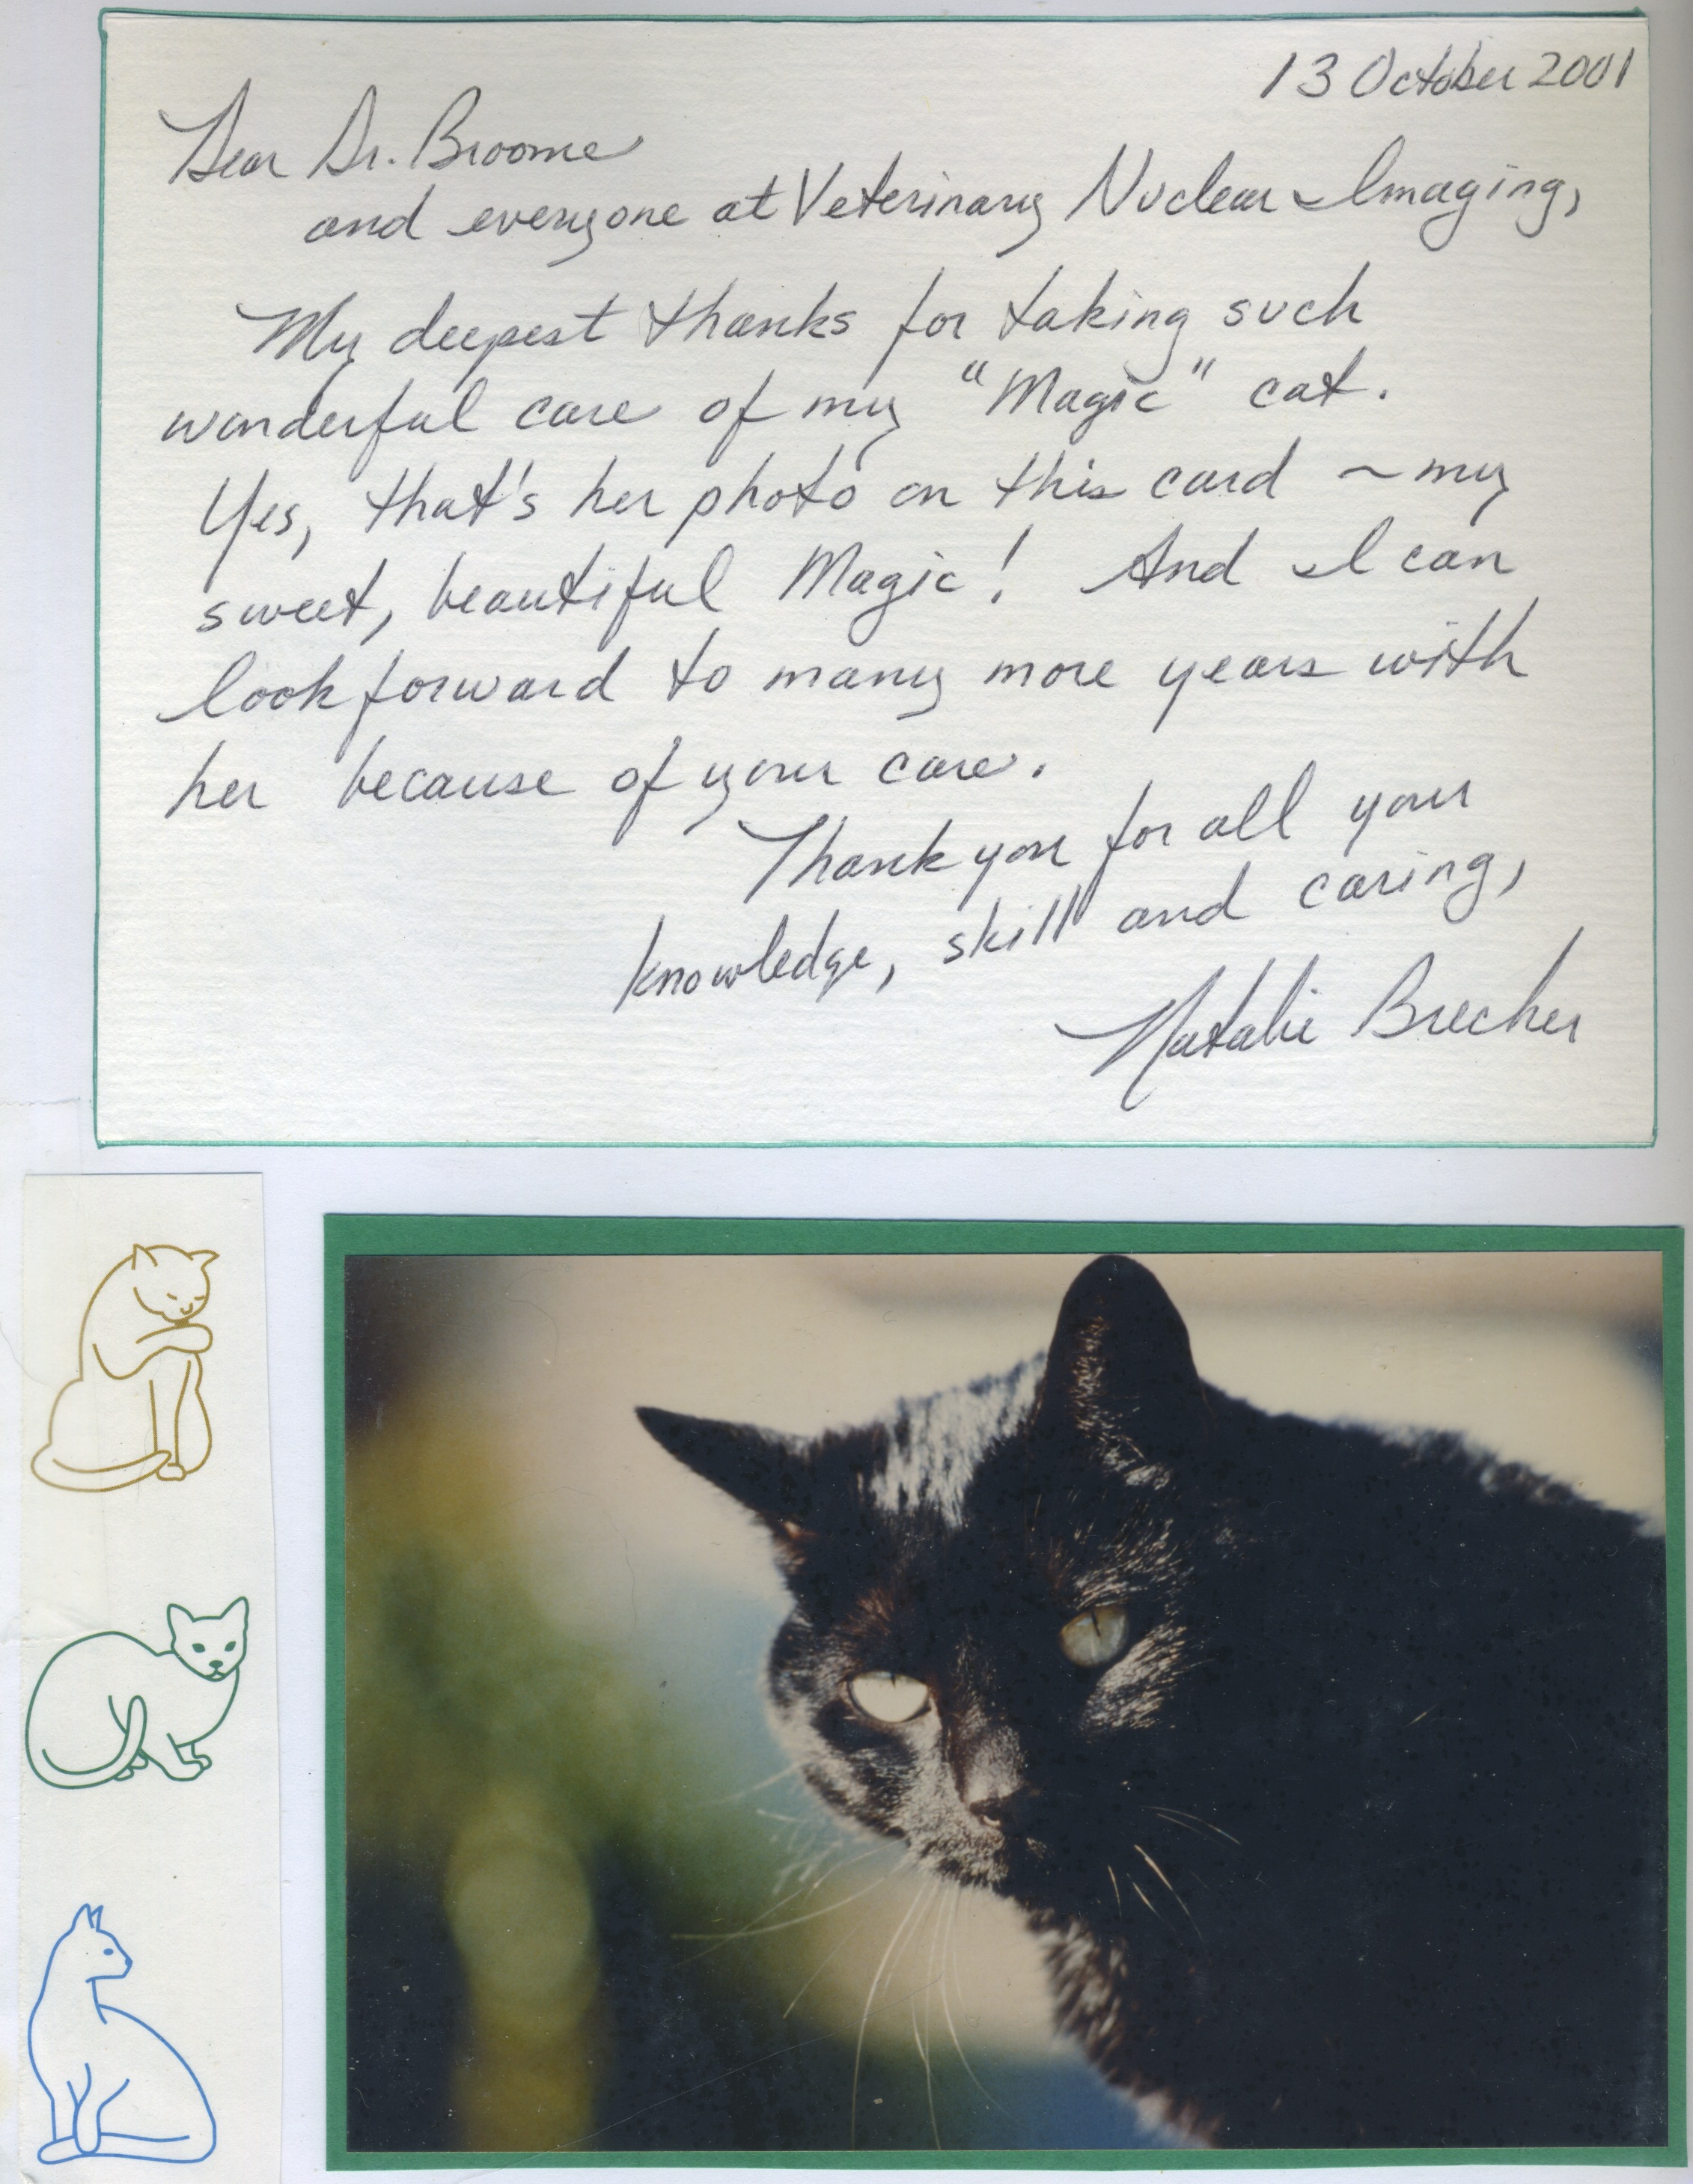 13 October 2001
Dear Dr. Broome
and everyone at Veterinary Nuclear Imaging,
My deepest thanks for taking such
wonderful care of my "Magic" cat.
Yes, that's her photo on this card ~ my
sweet, beautiful Magic! And I can
look forward to many more years with
her because of your care.
Thank you for all your
knowledge, skill and caring,
Natalie Brecher